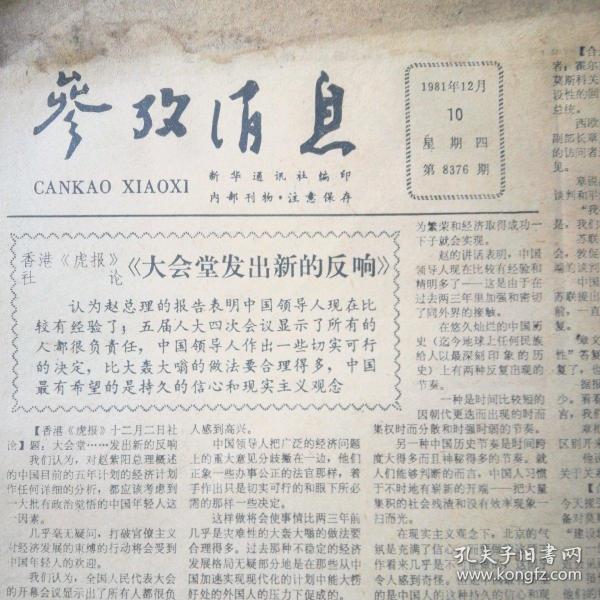 参考消息
CANKAO XIAOXI
新华通讯社编印
内部刊物·注意保存
1981年12月
10
星期四
第8376期
香港《虎报》
社论
《大会堂发出新的反响》
认为赵总理的报告表明中国领导人现在比
较有经验了；五届人大四次会议显示了所有的
人都很负责任，中国领导人作出一些切实可行
的决定，比大轰大嗡的做法要合理得多，中国
最有希望的是持久的信心和现实主义观念
【香港《虎报》十二月二日社
论】题：大会堂……发出新的反响
我们认为，对赵紫阳总理概述
的中国目前的五年计划的经济计划
作任何详细的分析，都应该考虑到
一大批有政治觉悟的中国年轻人这
一因素。
几乎毫无疑问，打破官僚主义
对经济发展的束缚的行动将会受到
中国年轻人的欢迎。
我们认为，全国人民代表大会
的开幕会议显示出了所有人都很负
人感到高兴。
中国领导人把广泛的经济问题
上的重大意见分歧撇在一边，他们
正象一些办事公正的法官那样，着
手作出只是切实可行的和眼下所必
需的那样一些决定。
这样做将会使事情比两三年前
几乎是灾难性的大轰大嗡的做法要
合理得多。过去那种不稳定的经济
发展格局无疑部分地是在那些从中
国加速实现现代化的计划中能大捞
好处的外国人的压力下促成的。
为繁荣和经济取得成功一
下子就会实现。
赵的讲话表明，中国
领导人现在比较有经验和
精明多了——这是由于在
过去两三年里加强和密切
了同外界的接触。
在悠久灿烂的中国历
史（迄今地球上任何民族
给人以最深刻印象的历
史）上有两种反复出现的
节奏。
一种是时间比较短的
因朝代更迭而出现的时而
集权时而分散和时强时弱的节奏。
另一种中国历史节奏是时间跨
度大得多而且神秘得多的节奏。就
人们能够判断的而言，中国人习惯
于不时地有崭新的开端——把大量
集积的社会残渣和没有效率现象一
扫而光。
在现实主义观念下，北京的气
氛是充满了信心
作看来几乎是不
令人感到奇怪。
的是中国人的这种持久的信心和现
【合
者；霍尔
莫斯科关
设性的回
总统。
西欧
副部长章
的访问者
见。
章说
谈判和平
孔夫子旧书网
www.kongfz.com